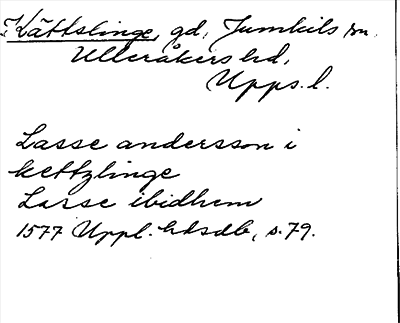 Kättslinge, gd, Jumkils sn,
Ulleråkers hd,
Upps. l.
Lasse andersson i
kettzlinge
Larse ibidhem
1577 Uppl. hdsdb, s. 79.